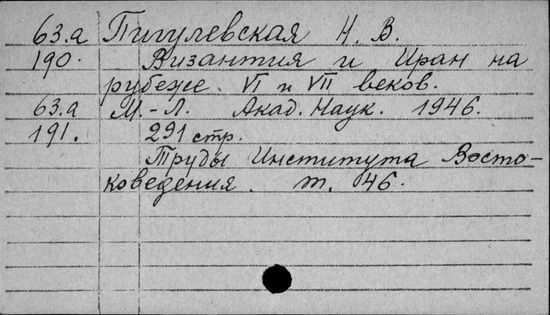 63.а Пигулевская Н. В.
190. Византия и Иран на
рубеже VI и VII веков.
63.а М.-Л. Акад. Наук. 1946.
191. 291 стр.
Труды Института Восто-
коведения. т. 46.